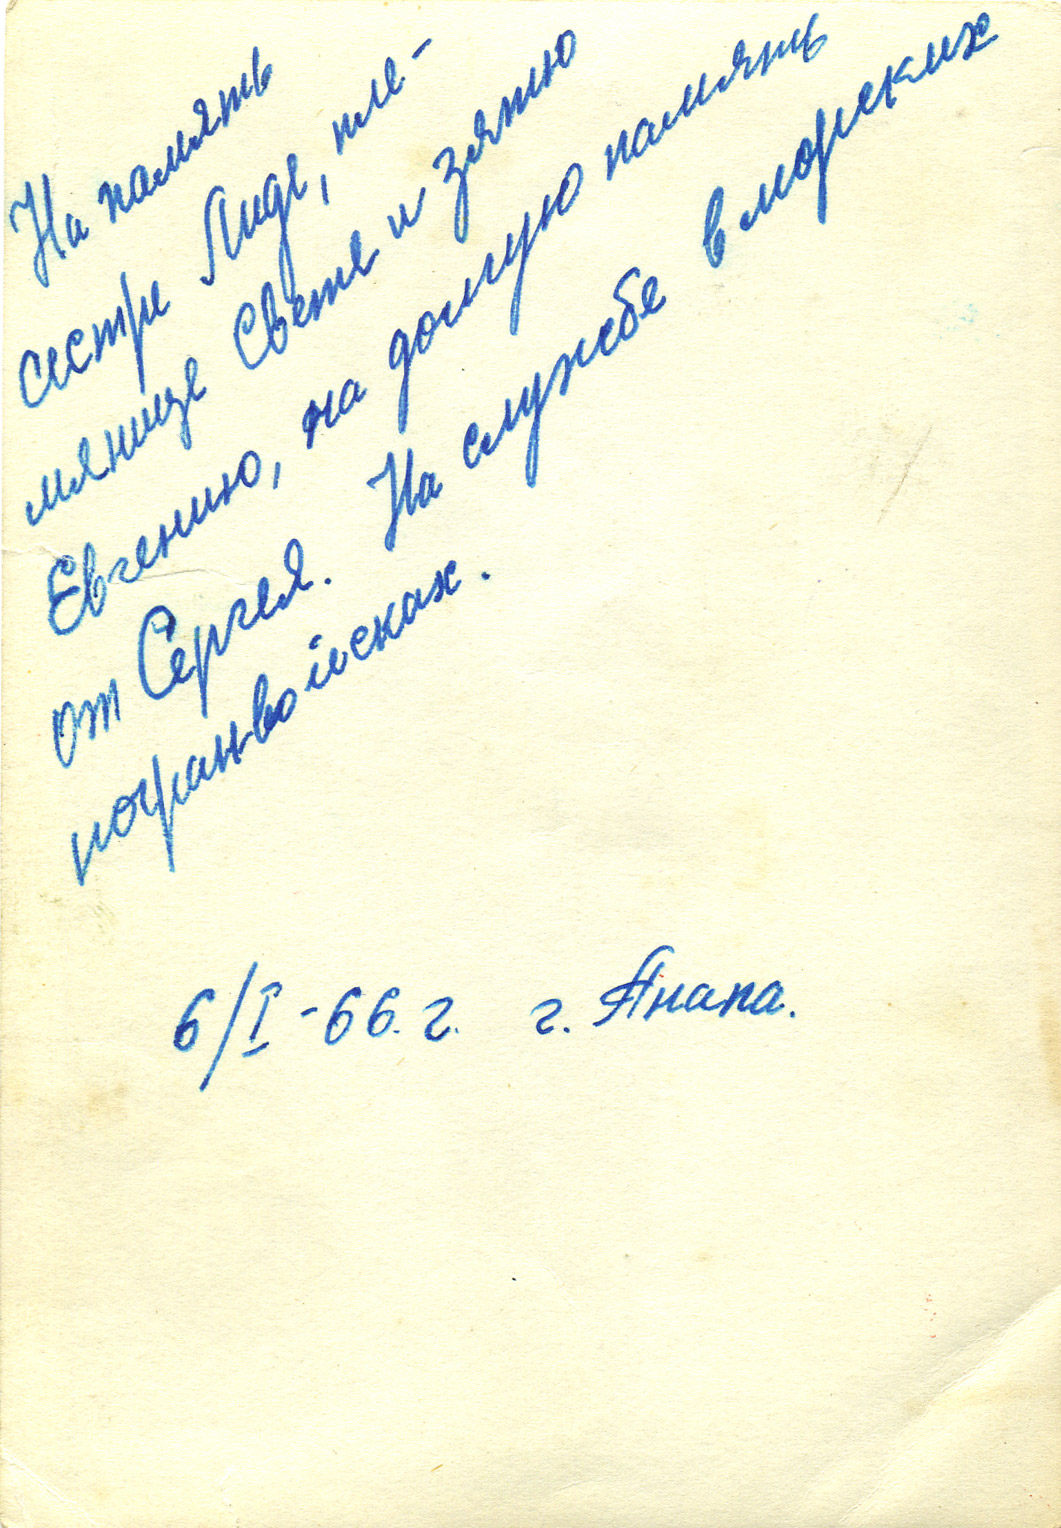 На память
сестре Лиде, пле-
мянице Свете и зятю
Евгению, на долгую память
от Сергея. На службе в морских
погранвойсках.
6/I-66.г. г. Анапа.